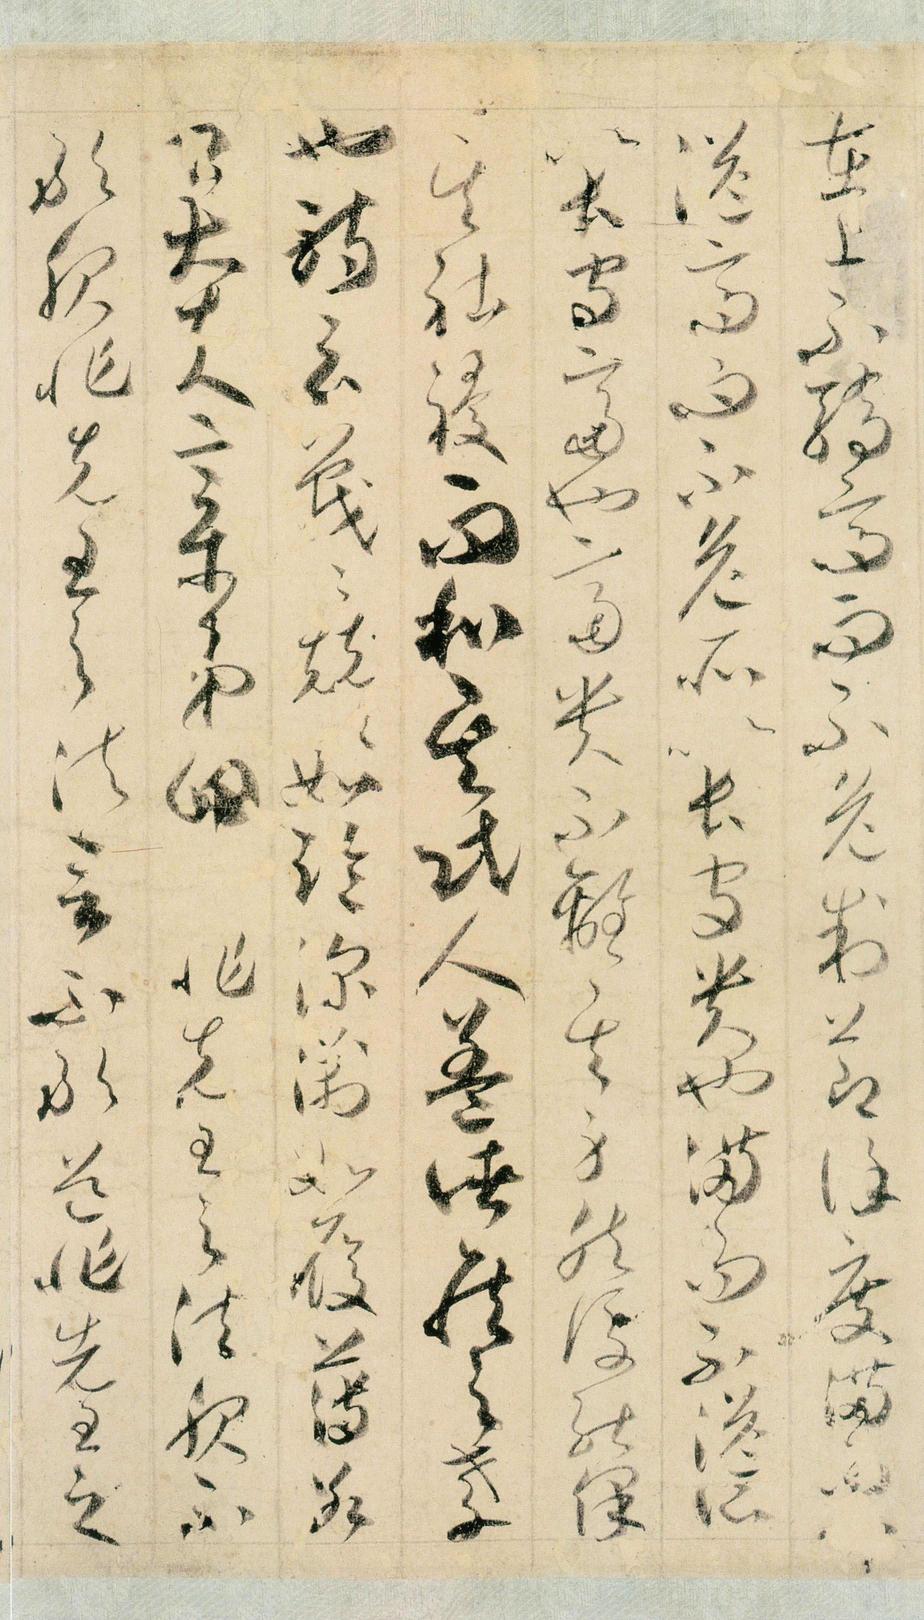 在上不驕高而不危制節謹度滿而不
溢高而不危所以長守貴也滿而不溢所
以長守富也富貴不離其身然後能保
其社稷而和其民人蓋諸侯之孝
也詩云戰〻兢〻如臨深淵如履薄冰
卿大夫章第四 非先王之法服不
敢服非先王之法言不敢道非先王之